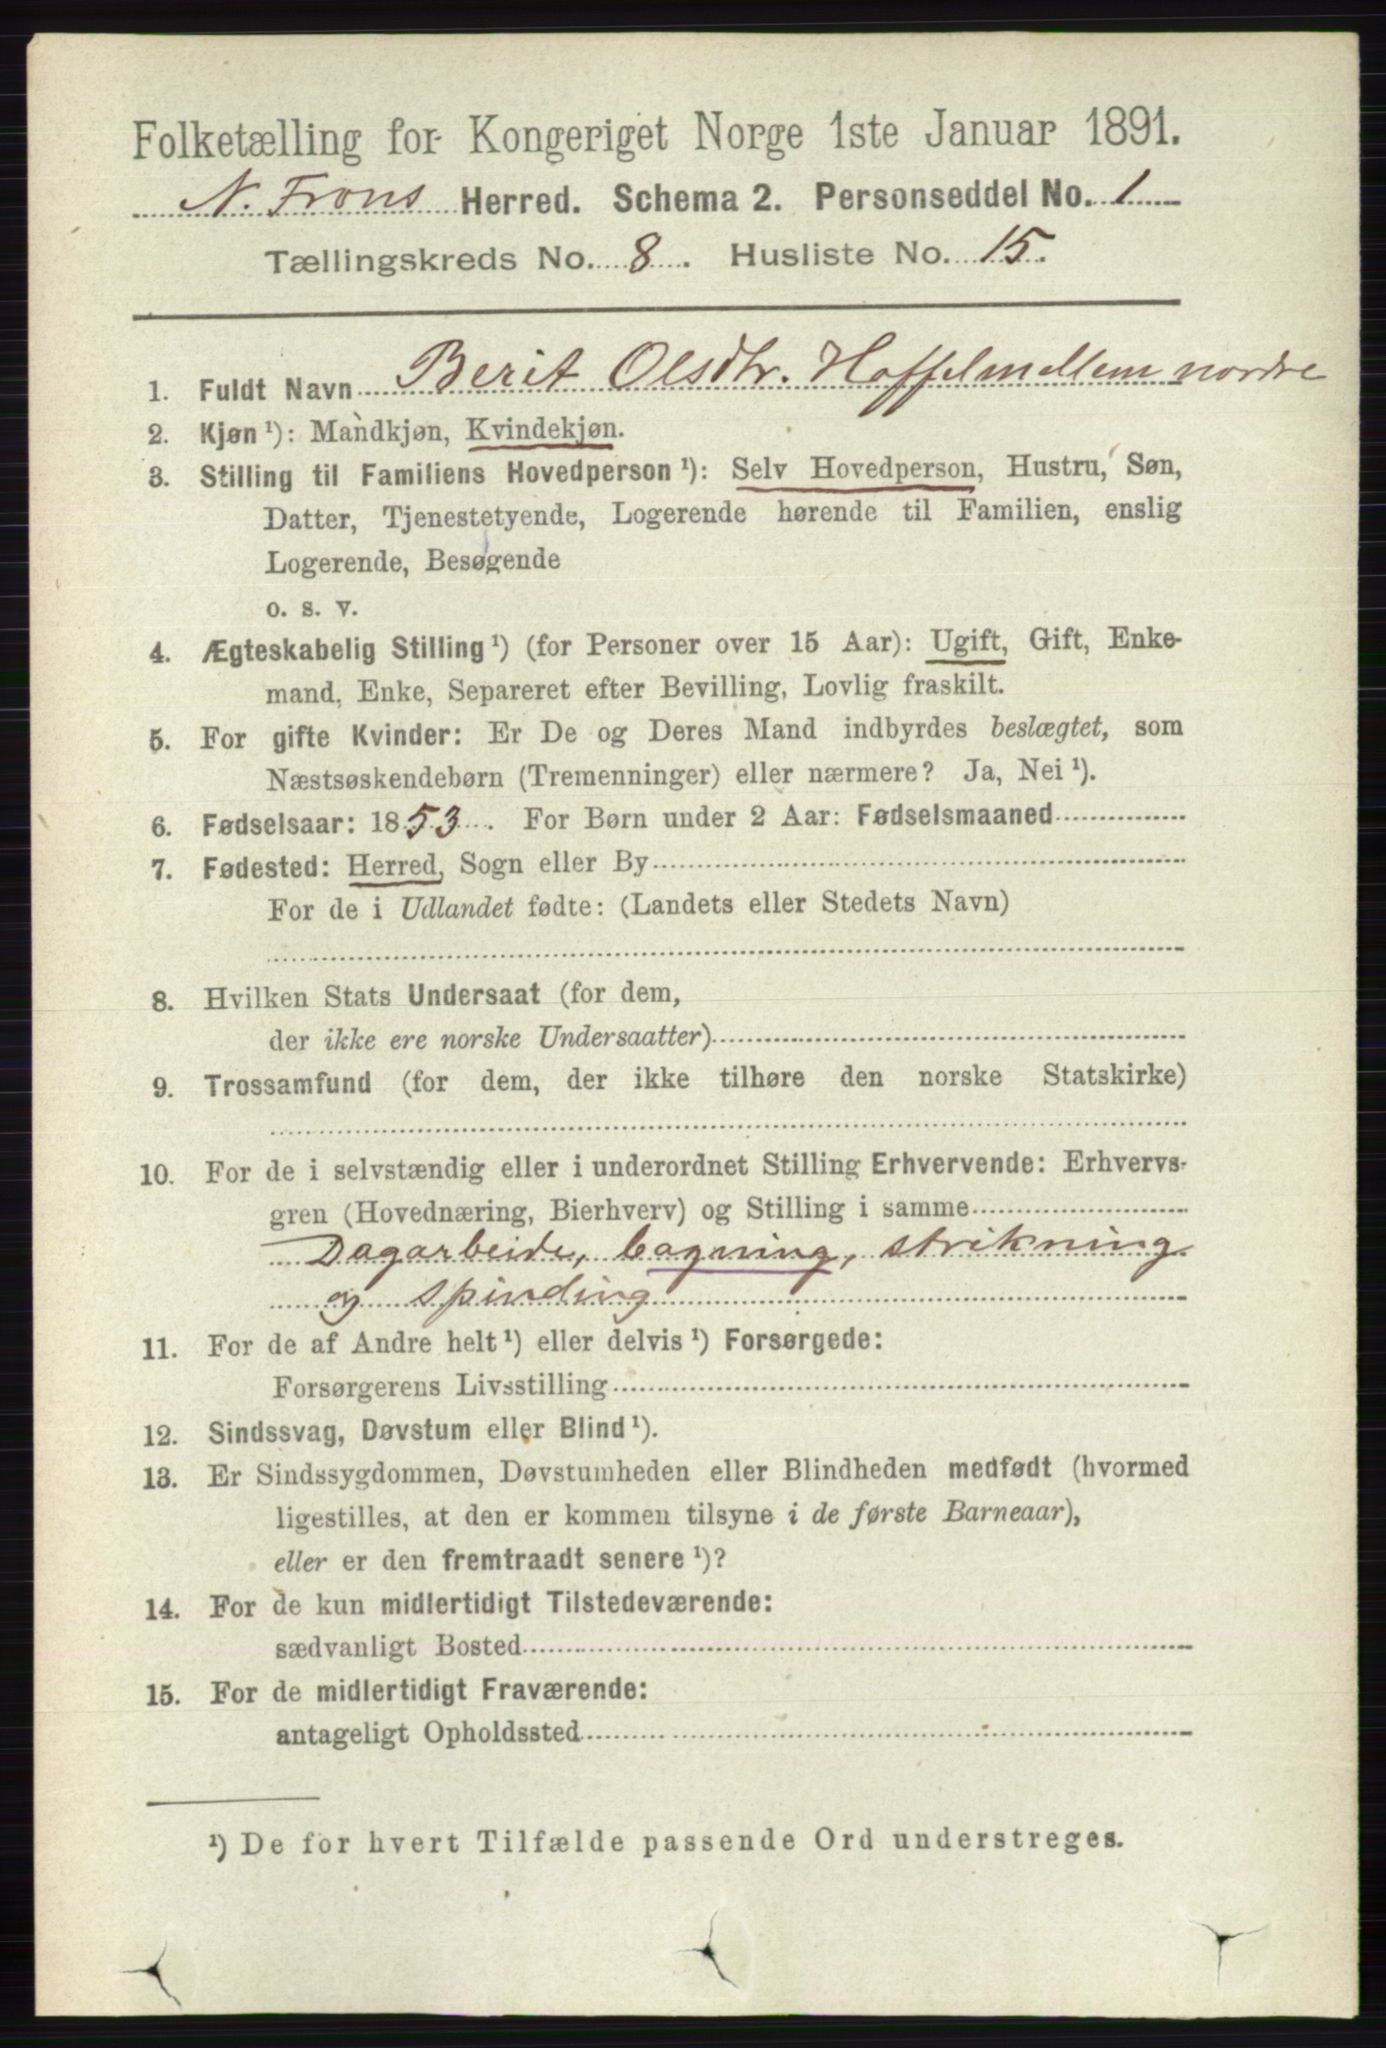 Folketælling for Kongeriget Norge 1ste Januar 1891.
N. Frons Herred. Schema 2. Personseddel No. 1
Tællingskreds No. 8. Husliste No. 15.
1. Fuldt Navn Berit Olsdtr. Hoffelmellem nordre
2. Kjøn ¹): Mandkjøn, Kvindekjøn.
3. Stilling til Familiens Hovedperson ¹): Selv Hovedperson, Hustru, Søn,
Datter, Tjenestetyende, Logerende hørende til Familien, enslig
Logerende, Besøgende
o. s. v.
4. Ægteskabelig Stilling ¹) (for Personer over 15 Aar): Ugift, Gift, Enke-
mand, Enke, Separeret efter Bevilling, Lovlig fraskilt.
5. For gifte Kvinder: Er De og Deres Mand indbyrdes beslægtet, som
Næstsøskendebørn (Tremenninger) eller nærmere? Ja, Nei ¹).
6. Fødselsaar: 1853. For Børn under 2 Aar: Fødselsmaaned
7. Fødested: Herred, Sogn eller By
For de i Udlandet fødte: (Landets eller Stedets Navn)
8. Hvilken Stats Undersaat (for dem,
der ikke ere norske Undersaatter)
9. Trossamfund (for dem, der ikke tilhøre den norske Statskirke)
10. For de i selvstændig eller i underordnet Stilling Erhvervende: Erhvervs-
gren (Hovednæring, Bierhverv) og Stilling i samme
Dagarbeide, bagning, strikning
og spinding
11. For de af Andre helt ¹) eller delvis ¹) Forsørgede:
Forsørgerens Livsstilling
12. Sindssvag, Døvstum eller Blind ¹).
13. Er Sindssygdommen, Døvstumheden eller Blindheden medfødt (hvormed
ligestilles, at den er kommen tilsyne i de første Barneaar),
eller er den fremtraadt senere ¹)?
14. For de kun midlertidigt Tilstedeværende:
sædvanligt Bosted
15. For de midlertidigt Fraværende:
antageligt Opholdssted
¹) De for hvert Tilfælde passende Ord understreges.